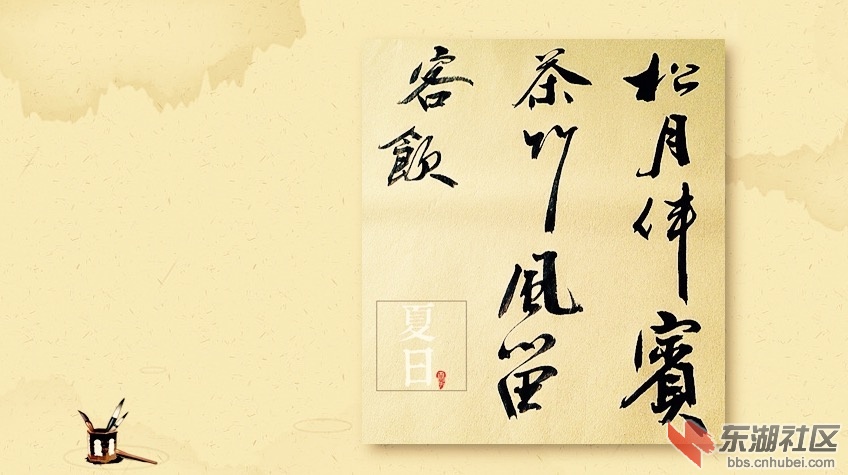 松月伴賓
茶竹風留
客飲
夏日
东湖社区
bbs.cnhubei.com